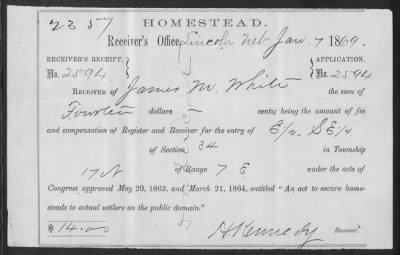 2357
HOMESTEAD.
Receiver's Office, Lincoln Neb Jan. 7 1869.
RECEIVER'S RECEIPT, APPLICATION,
No. 2594. No. 2594
RECEIVED OF James M. White the sum of
Fourteen dollars — cents; being the amount of fee
and compensation of Register and Receiver for the entry of E/2 SE/4
of Section 34 in Township
17 N of Range 7 E under the acts of
Congress approved May 20, 1862, and March 21, 1864, entitled "An act to secure home-
steads to actual settlers on the public domain."
$ 14.00 H Kennedy Receiver.